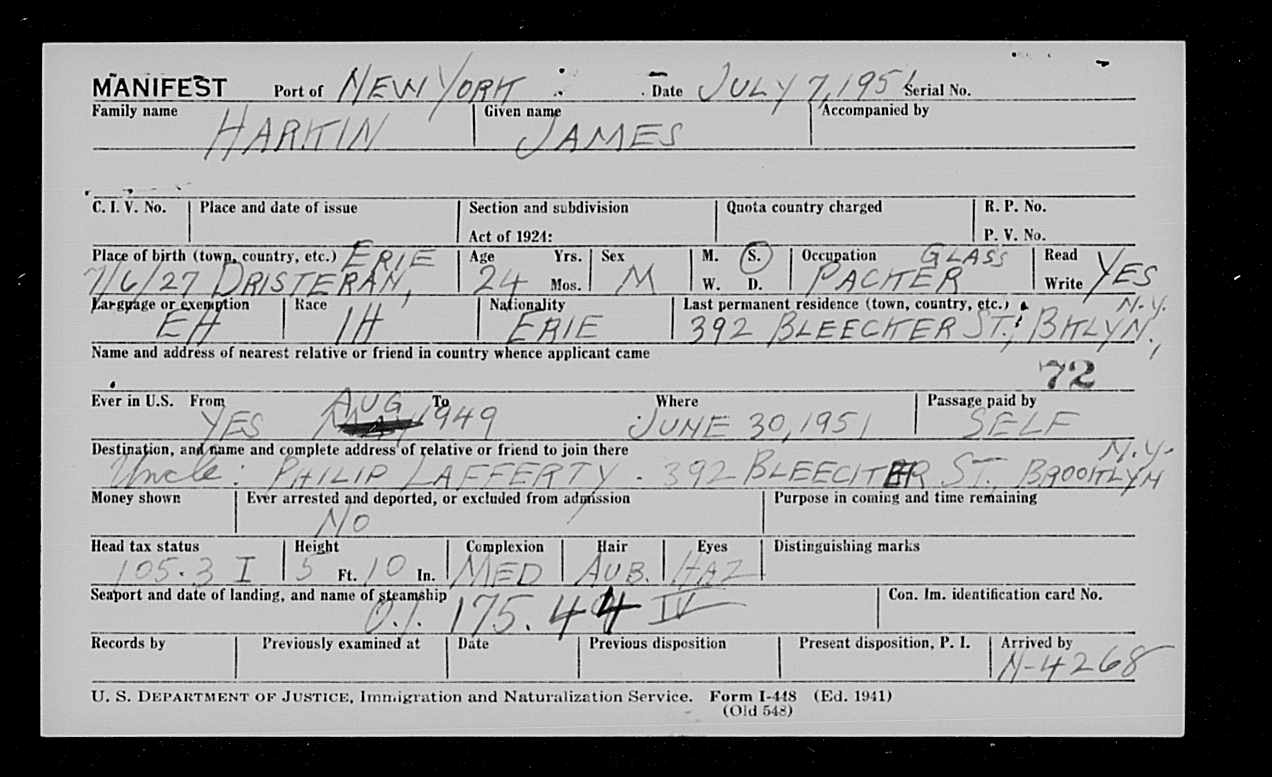 MANIFEST Port of NEW YORK Date JULY 7, 1951 Serial No.
Family name Given name Accompanied by
HARKIN JAMES
C. I. V. No. Place and date of issue Section and subdivision Quota country charged R. P. No.
Act of 1924: P. V. No.
Place of birth (town, country, etc.) ERIE Age Yrs. Sex M. S. Occupation GLASS Read
7/6/27 DRISTERAN, 24 Mos. M W. D. PACKER Write YES
Language or exemption Race Nationality Last permanent residence (town, country, etc.) N.Y.
EH IH ERIE 392 BLEECKER ST., BKLYN.,
Name and address of nearest relative or friend in country whence applicant came
72
Ever in U.S. From AUG To Where Passage paid by
YES 1949 JUNE 30, 1951 SELF
Destination, and name and complete address of relative or friend to join there N.Y.
Uncle: PHILIP LAFFERTY - 392 BLEECKER ST. BROOKLYN
Money shown Ever arrested and deported, or excluded from admission Purpose in coming and time remaining
NO
Head tax status Height Complexion Hair Eyes Distinguishing marks
105.3 I 5 Ft. 10 In. MED AUB. HAZ
Seaport and date of landing, and name of steamship Con. Im. identification card No.
O.I. 175.44 IV
Records by Previously examined at Date Previous disposition Present disposition, P. I. Arrived by
N-4268
U. S. DEPARTMENT OF JUSTICE, Immigration and Naturalization Service. Form I-448 (Ed. 1941)
(Old 548)